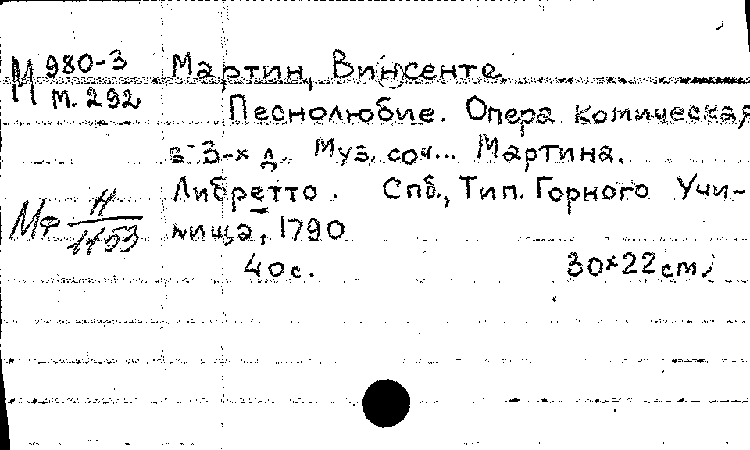 М 980-3 Мартин, Винсенте
т. 292
Песнолюбие. Опера комическая
в 3-х д. Муз. соч... Мартина.
Либретто. Спб., Тип. Горного Учи-
лища, 1790
Мф Н/1153
40 с. 30×22 cm.